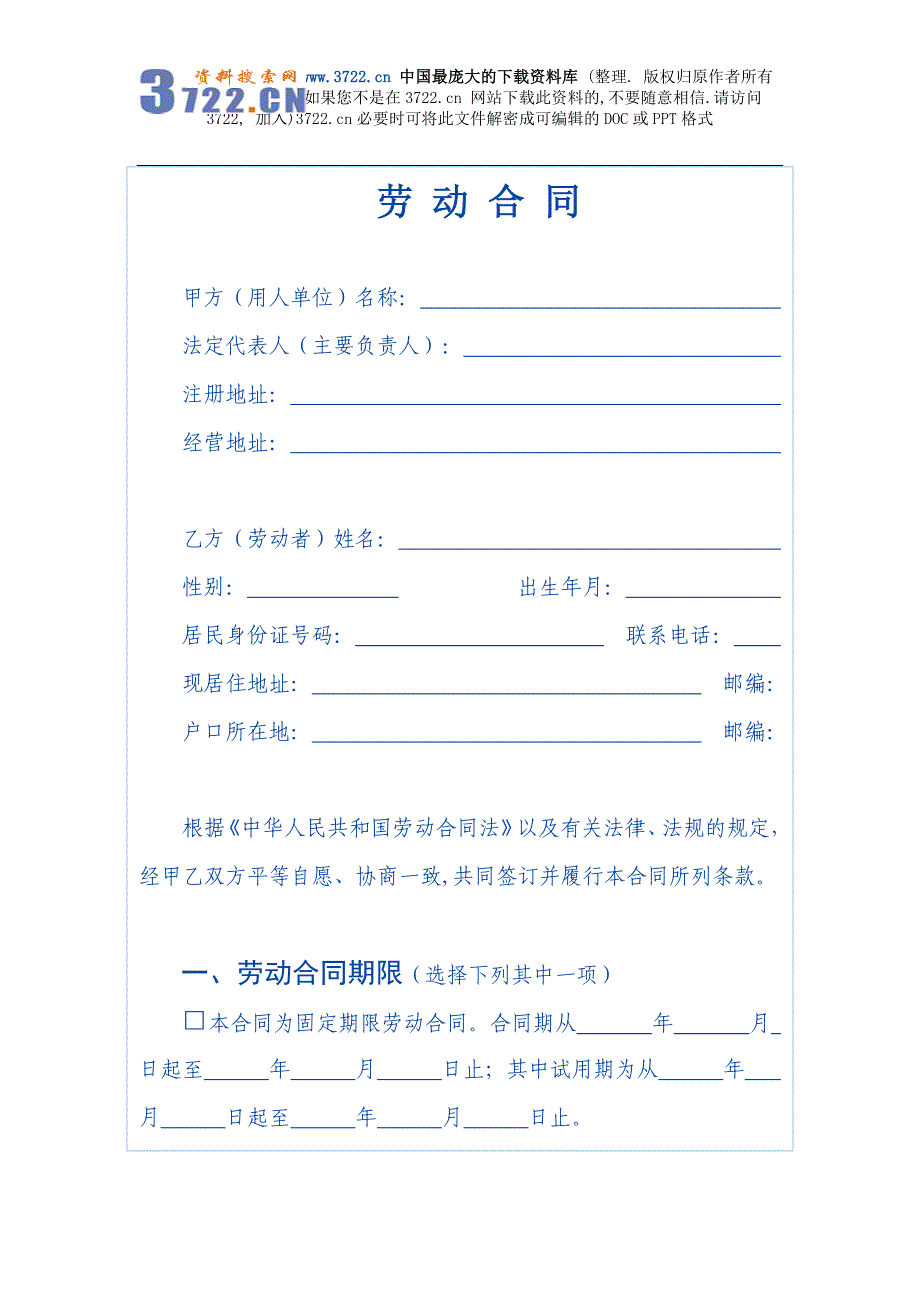 资料搜索网 www.3722.cn 中国最庞大的下载资料库 (整理. 版权归原作者所有
3722.CN 如果您不是在3722.cn 网站下载此资料的,不要随意相信.请访问
3722, 加入)3722.cn必要时可将此文件解密成可编辑的DOC或PPT格式
劳 动 合 同
甲方(用人单位)名称:
法定代表人(主要负责人):
注册地址:
经营地址:
乙方(劳动者)姓名:
性别: 出生年月:
居民身份证号码: 联系电话:
现居住地址: 邮编:
户口所在地: 邮编:
根据《中华人民共和国劳动合同法》以及有关法律、法规的规定,
经甲乙双方平等自愿、协商一致,共同签订并履行本合同所列条款。
一、劳动合同期限(选择下列其中一项)
□本合同为固定期限劳动合同。合同期从_______年_______月_
日起至______年______月______日止;其中试用期为从______年___
月______日起至______年______月______日止。